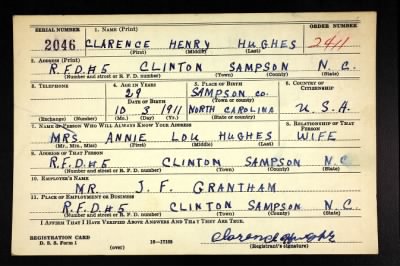 SERIAL NUMBER 1. NAME (Print) ORDER NUMBER
2046 CLARENCE HENRY HUGHES 2411
(First) (Middle) (Last)
2. ADDRESS (Print)
R.F.D.#5 CLINTON SAMPSON N.C.
(Number and street or R. F. D. number) (Town) (County) (State)
3. TELEPHONE 4. AGE IN YEARS 5. PLACE OF BIRTH 6. COUNTRY OF CITIZENSHIP
29 SAMPSON CO.
DATE OF BIRTH (Town or county)
10 3 1911 NORTH CAROLINA U.S.A.
(Exchange) (Number) (Mo.) (Day) (Yr.) (State or country)
7. NAME OF PERSON WHO WILL ALWAYS KNOW YOUR ADDRESS 8. RELATIONSHIP OF THAT PERSON
MRS. ANNIE LOU HUGHES WIFE
(Mr., Mrs., Miss) (First) (Middle) (Last)
9. ADDRESS OF THAT PERSON
R.F.D.#5 CLINTON SAMPSON N.C
(Number and street or R. F. D. number) (Town) (County) (State)
10. EMPLOYER'S NAME
MR. J. F. GRANTHAM
11. PLACE OF EMPLOYMENT OR BUSINESS
R.F.D.#5 CLINTON SAMPSON N.C.
(Number and street or R. F. D. number) (Town) (County) (State)
I AFFIRM THAT I HAVE VERIFIED ABOVE ANSWERS AND THAT THEY ARE TRUE.
REGISTRATION CARD
D. S. S. Form 1 (over) 16—17105 Clarence Hughes
(Registrant's signature)